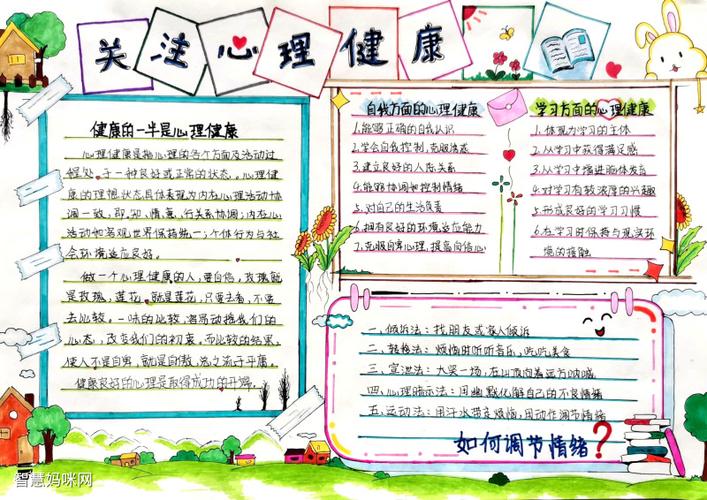 关注心理健康
健康的一半是心理健康
心理健康是指心理的各个方面及活动过
程处于一种良好或正常的状态。心理健
康的理想状态具体表现为内在心理活动协
调一致，即知、情、意、行关系协调；内在心
活动和客观世界保持统一；个体行为与社
会环境适应良好。
做一个心理健康的人，要自信，玫瑰就
是玫瑰，莲花就是莲花，只要去看，不要
去比较。一味的比较，容易动摇我们的
心态，改变我们的初衷。而比较的结果，
使人不是自卑，就是自傲，总之流于平庸。
健康良好的心理是取得成功的开端。
自我方面的心理健康
1.能够正确的自我认识
2.学会自我控制，克服惰惑
3.建立良好的人际关系
4.能够协调和控制情绪
5.对自己的生活负责
6.拥有良好的环境适应能力
7.克服自卑心理，提高自信心
学习方面的心理健康
1.体现为学习的主体
2.从学习中获得满足感
3.从学习中增进脑体发育
4.对学习有较浓厚的兴趣
5.形成良好的学习习惯
6.在学习时保持与现实环
境的接触
一、倾诉法：找朋友或家人倾诉
二、转移法：烦恼时听听音乐，吃吃美食
三、宣泄法：大哭一场，在山顶向着远方呐喊
四、心理暗示法：用幽默化解自己的不良情绪
五、运动法：用汗水带走烦恼，用动作调节情绪
如何调节情绪？
智慧妈咪网